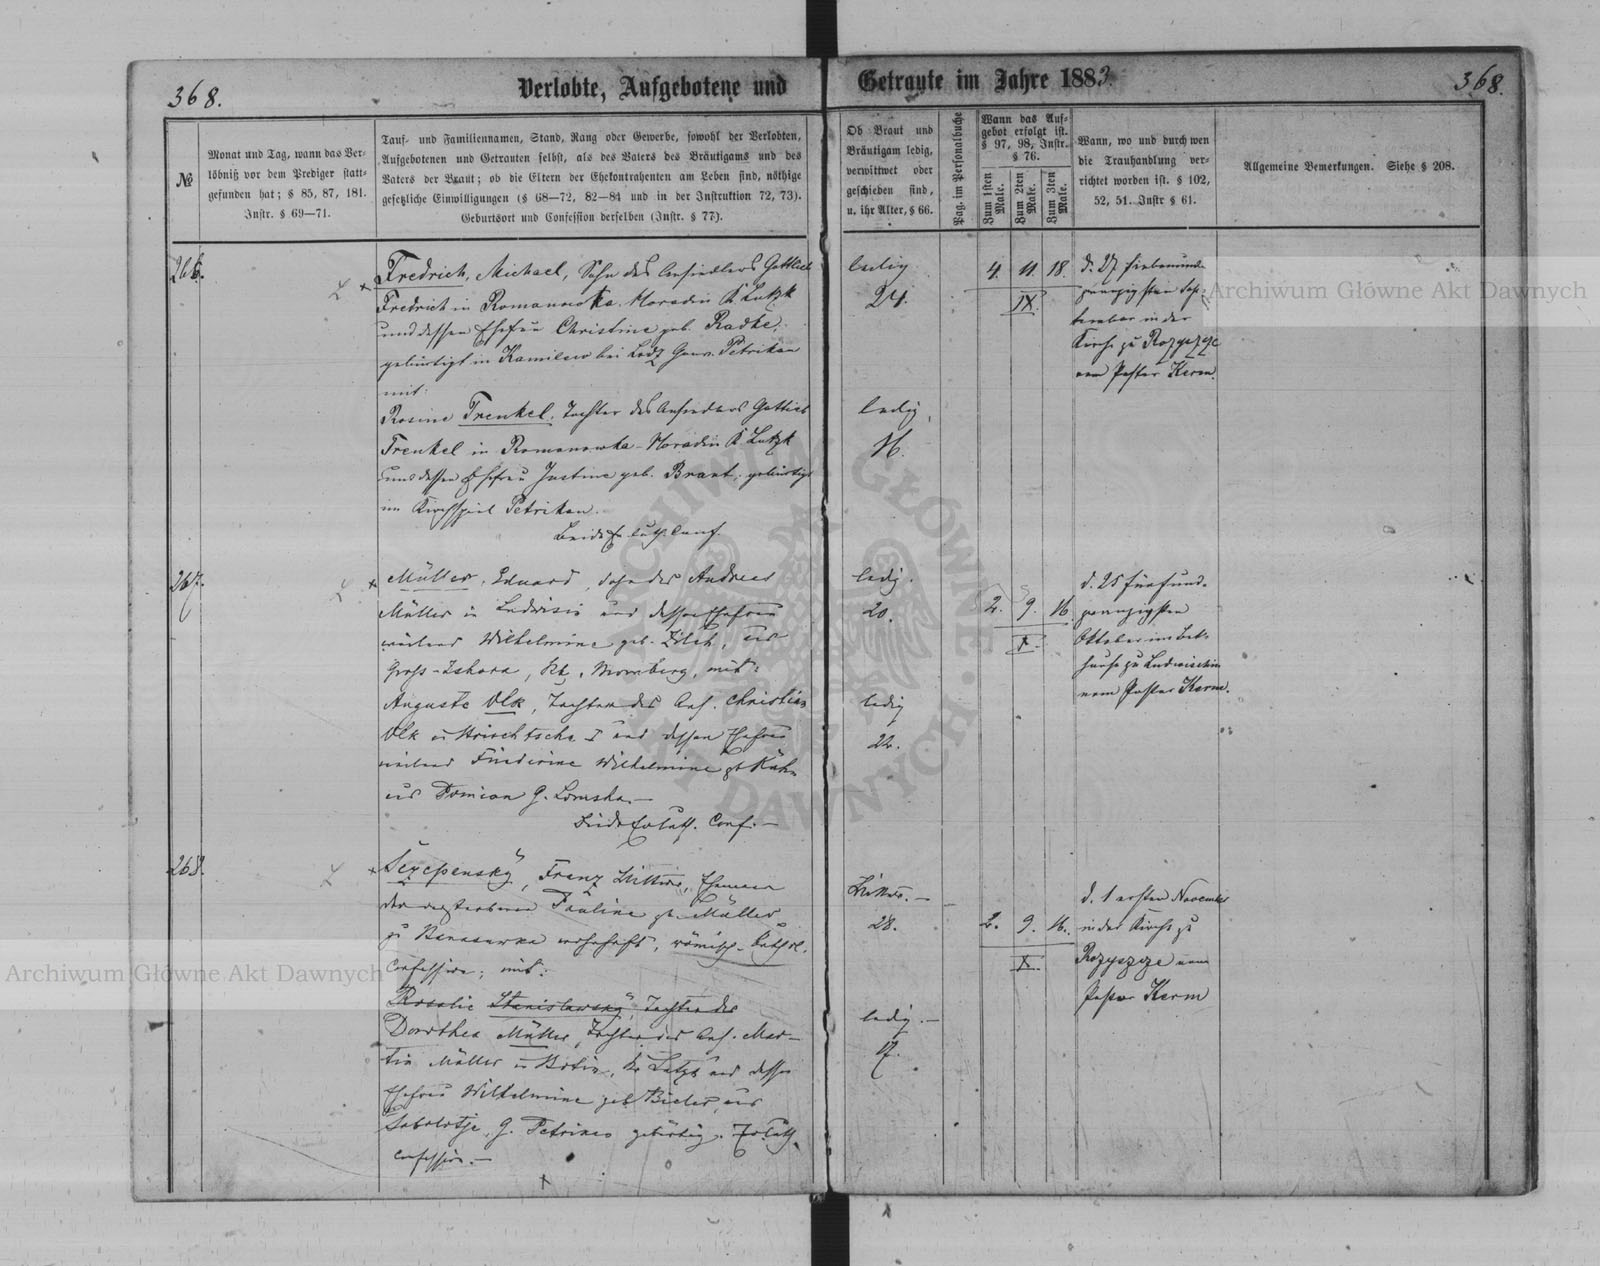 368.
Verlobte, Aufgebotene und
Getraute im Jahre 1883.
368.
№
Monat und Tag, wann das Ver-
löbniß vor dem Prediger statt-
gefunden hat; § 85, 87, 181.
Instr. § 69—71.
Tauf- und Familiennamen, Stand, Rang oder Gewerbe, sowohl der Verlobten,
Aufgebotenen und Getrauten selbst, als des Vaters des Bräutigams und des
Vaters der Braut; ob die Eltern der Ehekontrahenten am Leben sind, nöthige
gesetzliche Einwilligungen (§ 68—72, 82—84 und in der Instruktion 72, 73).
Geburtsort und Confession derselben (Instr. § 77).
Ob Braut und
Bräutigam ledig,
verwittwet oder
geschieden sind,
u. ihr Alter, § 66.
Pag. im Personalbuche
Wann das Auf-
gebot erfolgt ist.
§ 97, 98, Instr.
§ 76.
Zum 1sten Male.
Zum 2ten Male.
Zum 3ten Male.
Wann, wo und durch wen
die Trauhandlung ver-
richtet worden ist. § 102,
52, 51. Instr § 61.
Allgemeine Bemerkungen. Siehe § 208.
266.
Fredrich, Michael, Sohn des Ansiedlers Gottlieb
Fredrich in Romanowka Horadin K. Lutzk
und dessen Ehefrau Christine geb. Radke,
gebürtigt in Kamilew bei Lodz Gouv. Petrikau
mit:
Rosine Frenkel, Tochter des Ansiedlers Gottlieb
Frenkel in Romanowka-Horadin K Lutzk
und dessen Ehefrau Justine geb. Brant, gebürtigt
im Kirchspiel Petrikau.
Beide Ev. luth. Conf.
ledig
24.
4. 11. 18.
IX.
d. 27 siebenund-
zwanzigsten Sep-
tember in der
Kirche zu Rozyszcze
vom Pastor Kerm.
ledig,
16.
267.
Müller, Eduard, Sohn des Andreas
Müller in und dessen Ehefrau
weiland Wilhelmine geb. Zilch, aus
Gross-Ishora, mit:
Auguste Olk, Tochter des Ans. Christian
Olk in I und dessen Ehefrau
weiland Wilhelmine gb Kühn
aus G. Lomsha.—
Beide Ev luth. Conf.—
ledig.
20.
2. 9. 16.
X.
d. 25 fünfund-
zwanzigsten
Oktober im Bet-
hause zu Ludwischin
vom Pastor Kerm.
ledig
22.
268.
Szczepensky, Franz Wittwer, Ehemann
der verstorbenen Pauline gb. Müller
zu wohnhaft, römisch-kathol.
Confession; mit:
Rosalie Stanislawsky, Tochter des
Dorothea Müller, Tochter des Ans. Mar-
tin Müller in Kr Lutzk und dessen
Ehefrau Wilhelmine geb Bieler, aus
G. Petrikau gebürtig. Ev luth.
Confession.—
Wittwer.—
28.
2. 9. 16.
X.
d. 1 ersten November
in der Kirche zu
Rozyszcze vom
Pastor Kerm
ledig.—
17.
Archiwum Główne Akt Dawnych
Archiwum Główne Akt Dawnych
ARCHIWUM GŁÓWNE AKT DAWNYCH